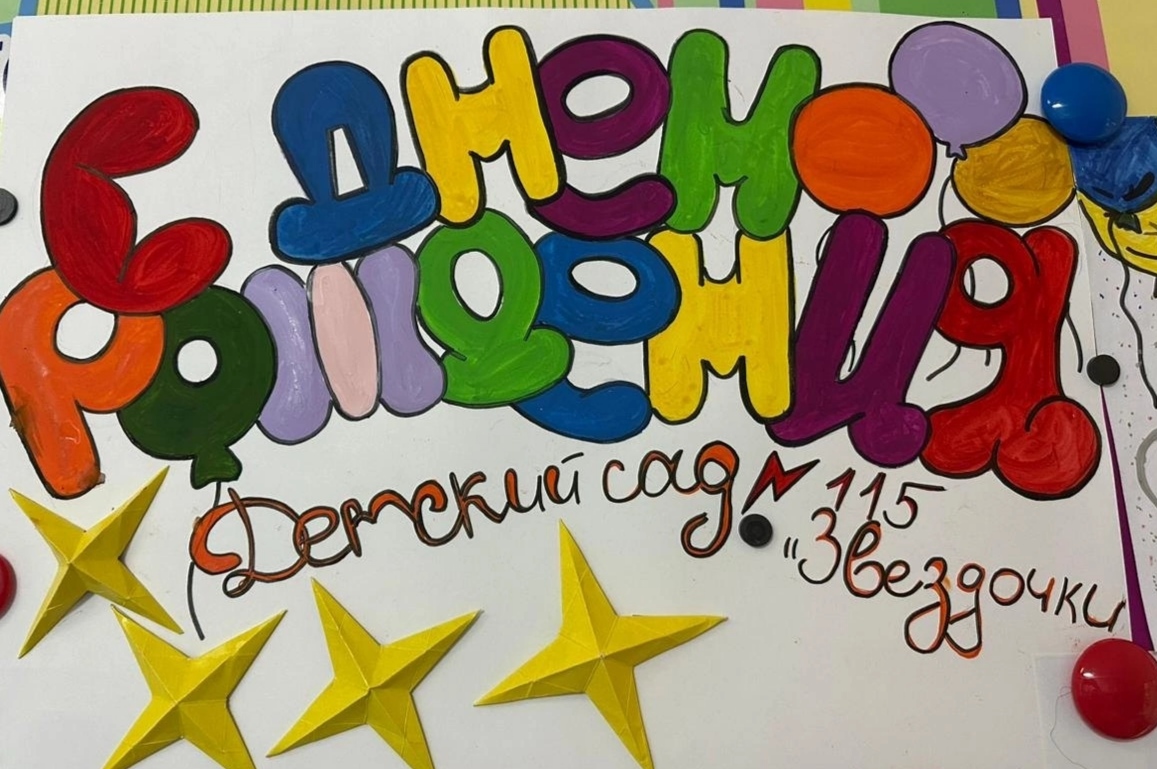 С ДНеМ
РОЖДеНИЯ
Детский сад N 115
"Звездочки